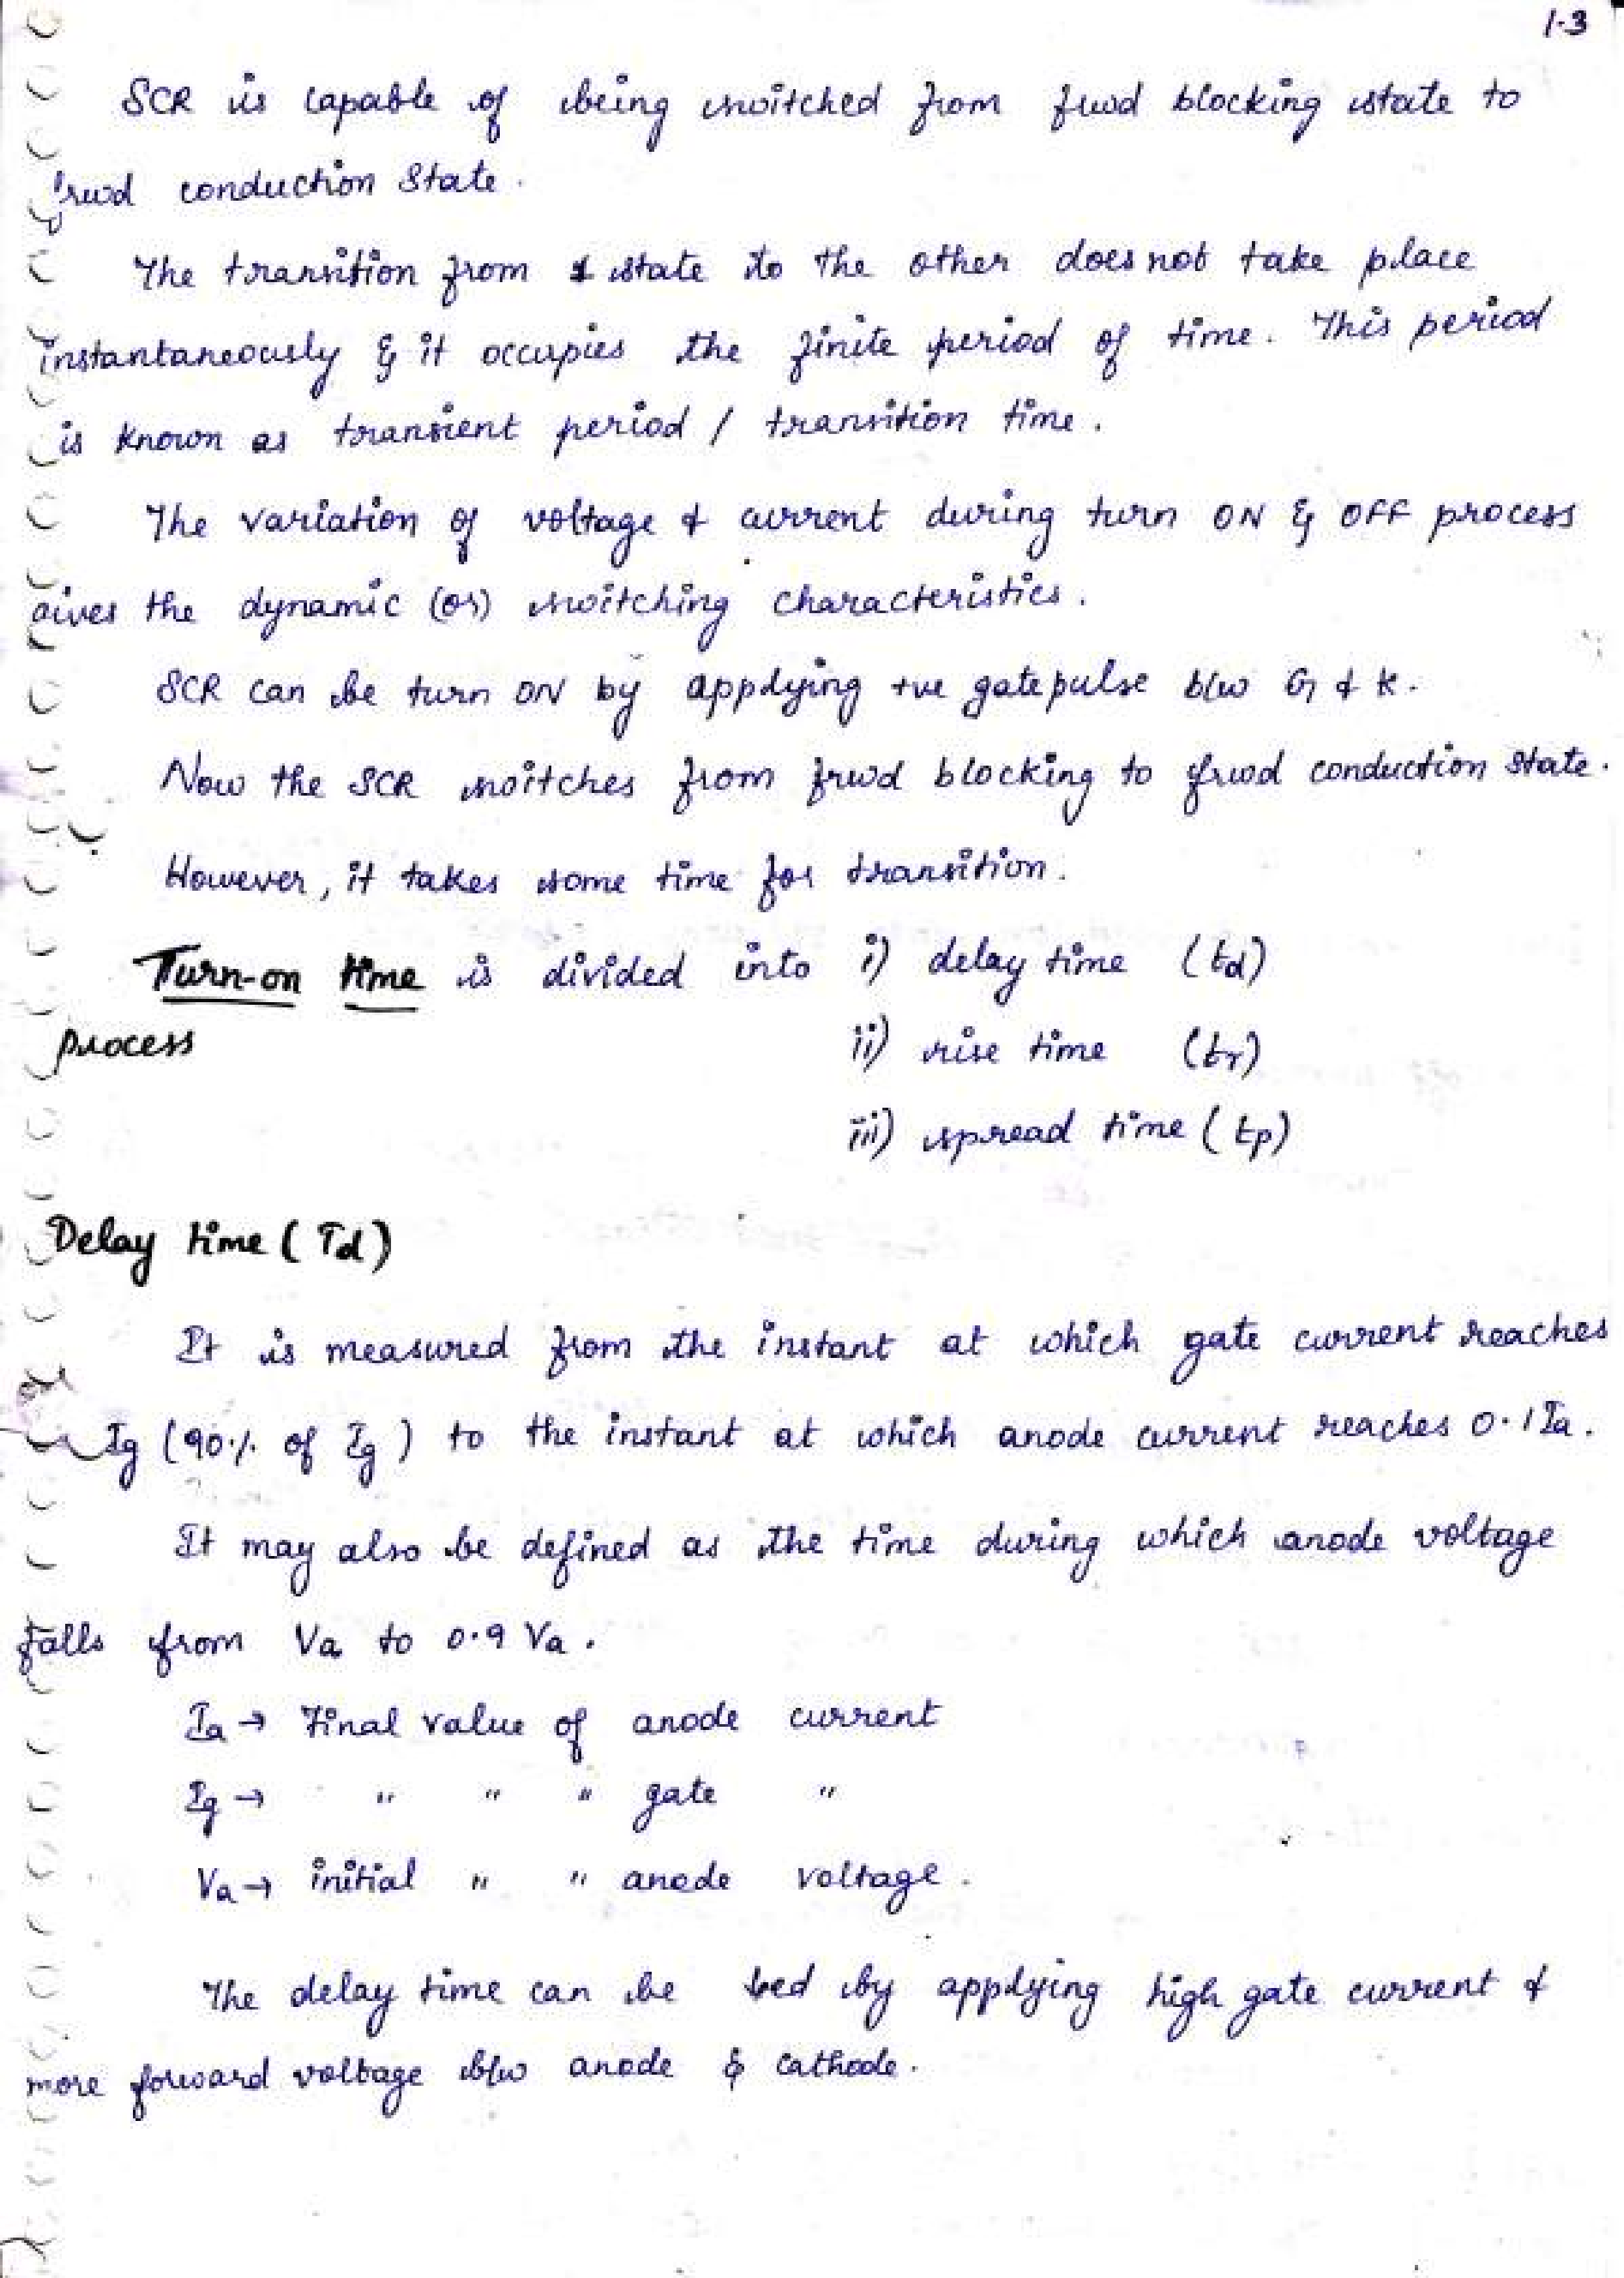 1.3
SCR is capable of being switched from fwd blocking state to
frwd conduction state.
The transition from 1 state to the other does not take place
instantaneously & it occupies the finite period of time. This period
is known as transient period / transition time.
The variation of voltage & current during turn ON & OFF process
gives the dynamic (or) switching characteristics.
SCR can be turn ON by applying +ve gate pulse b/w G & K.
Now the SCR switches from frwd blocking to frwd conduction state.
However, it takes some time for transition.
Turn-on time is divided into i) delay time (td)
process ii) rise time (tr)
iii) spread time (tp)
Delay time (Td)
It is measured from the instant at which gate current reaches
Ig (90% of Ig) to the instant at which anode current reaches 0.1Ia.
It may also be defined as the time during which anode voltage
falls from Va to 0.9 Va.
Ia → Final value of anode current
Ig → " " " gate "
Va → initial " " anode voltage.
The delay time can be ↓ed by applying high gate current &
more forward voltage b/w anode & cathode.